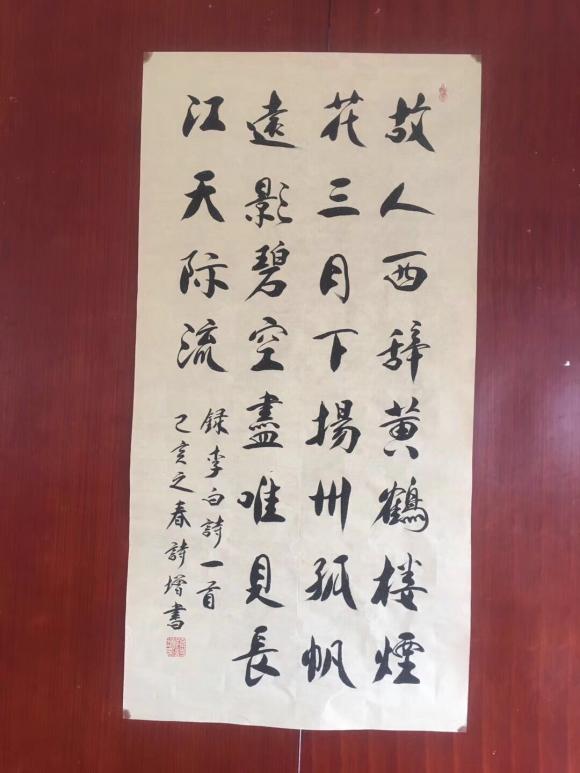 故人西辞黄鹤楼煙
花三月下揚州孤帆
遠影碧空盡唯見長
江天际流
録李白詩一首
己亥之春詩增書